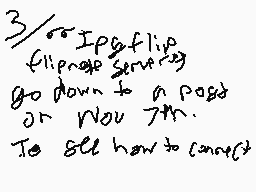 3/ Ipgflip
flipnote servers
go down to a post
on Nov 7th.
To see how to connect